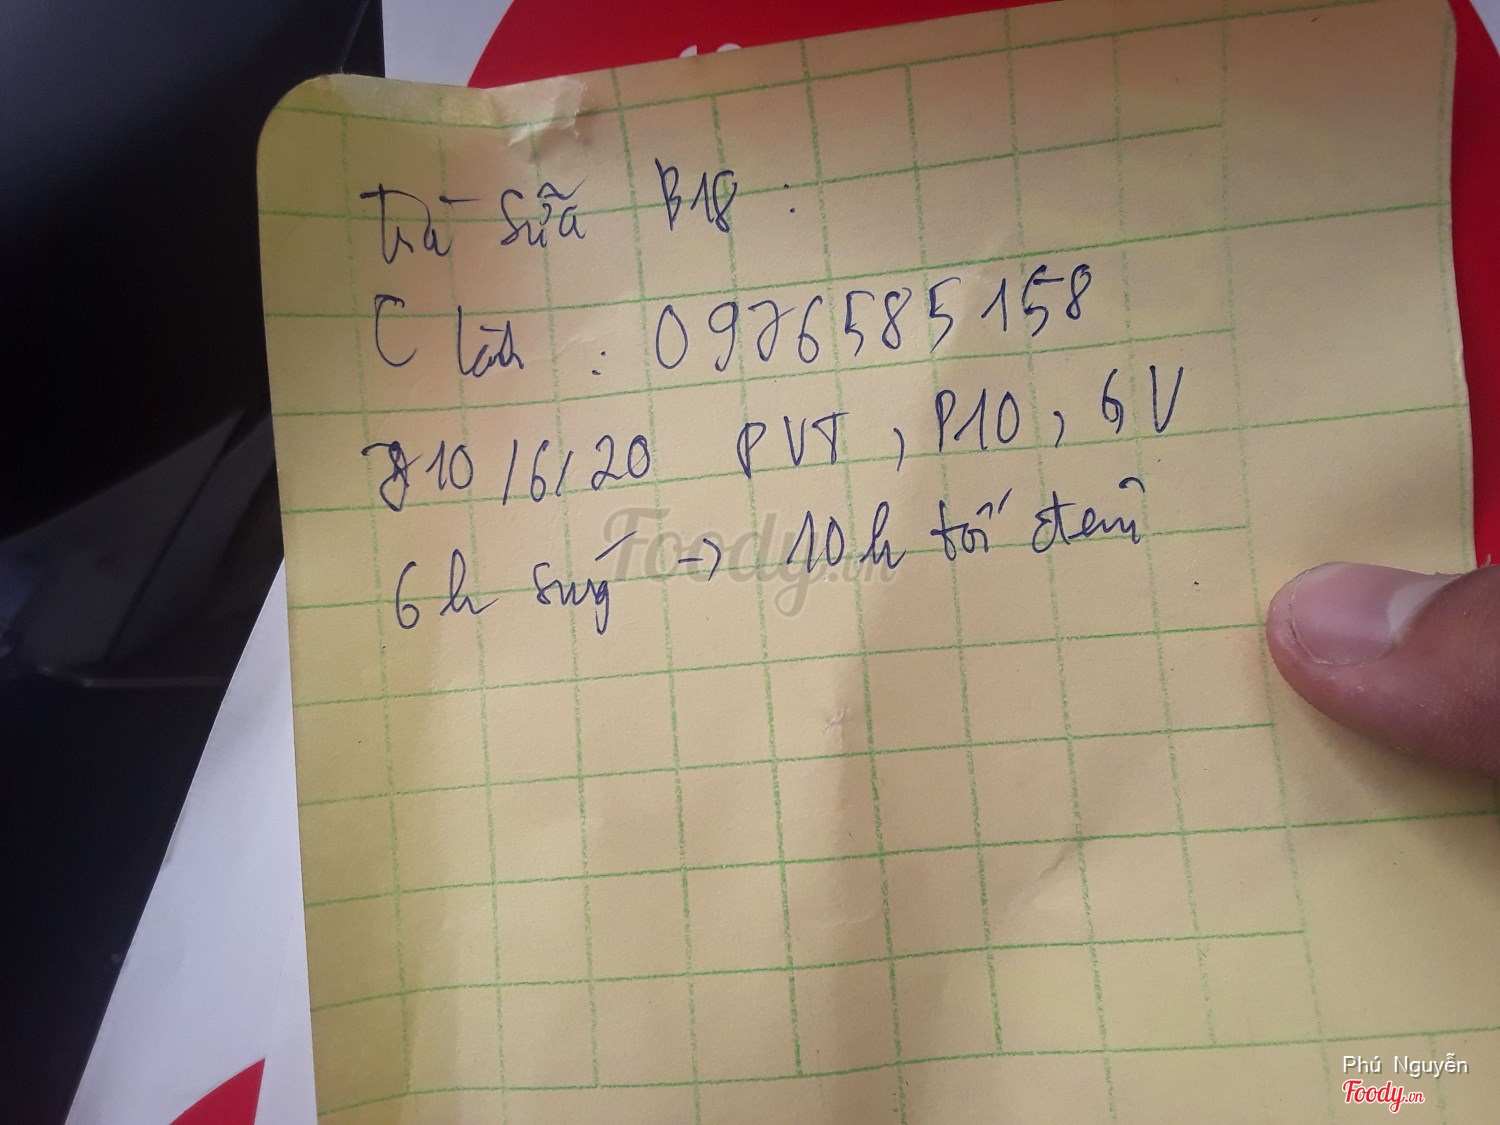 Trà sữa B18 :
C lành : 0976585158
10/6/20 PVT, P10, GV
6h sáng -> 10h tối đêm
Foody.vn
Phú Nguyễn
Foody.vn